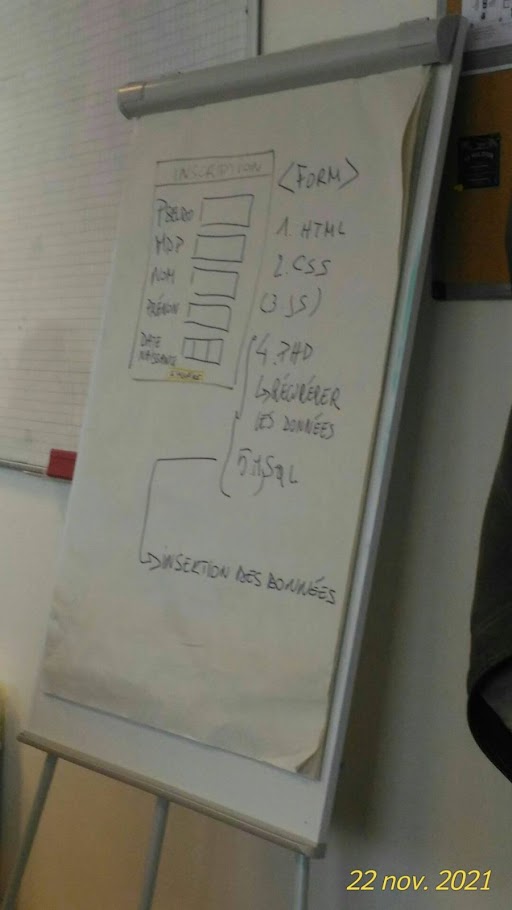 INSCRIPTION
PSEUDO
MDP
NOM
PRÉNOM
DATE
NAISSANCE
<FORM>
1. HTML
2. CSS
(3. JS)
4. PHP
↳ RÉCUPÉRER
LES DONNÉES
5. MySQL
↳ INSERTION DES DONNÉES
22 nov. 2021